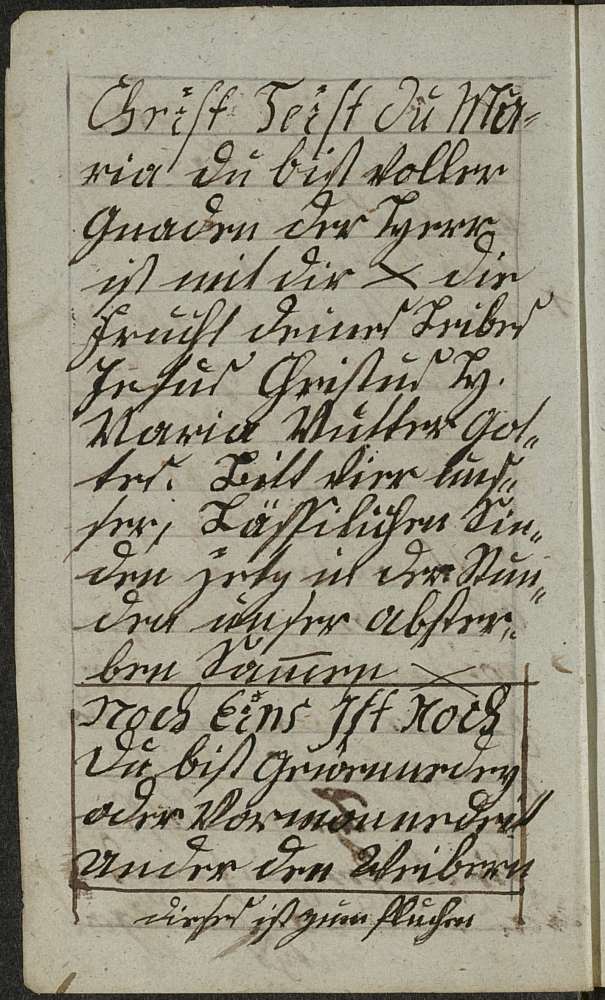 Christ Teist du Ma-
ria du bist voller
Gnaden der Herr
ist mit dir × die
Frucht deines Leibes
Jesus Christus H.
Maria Mutter Got„
tes. Bitt vier uns„
ser, Lässilichen Sin„
den jetz in der Stun„
den unser abster„
ben Sammen ×
Noch Eins Ist Noch
Du bist
oder
under den Weibern
dieses ist zum fluchen